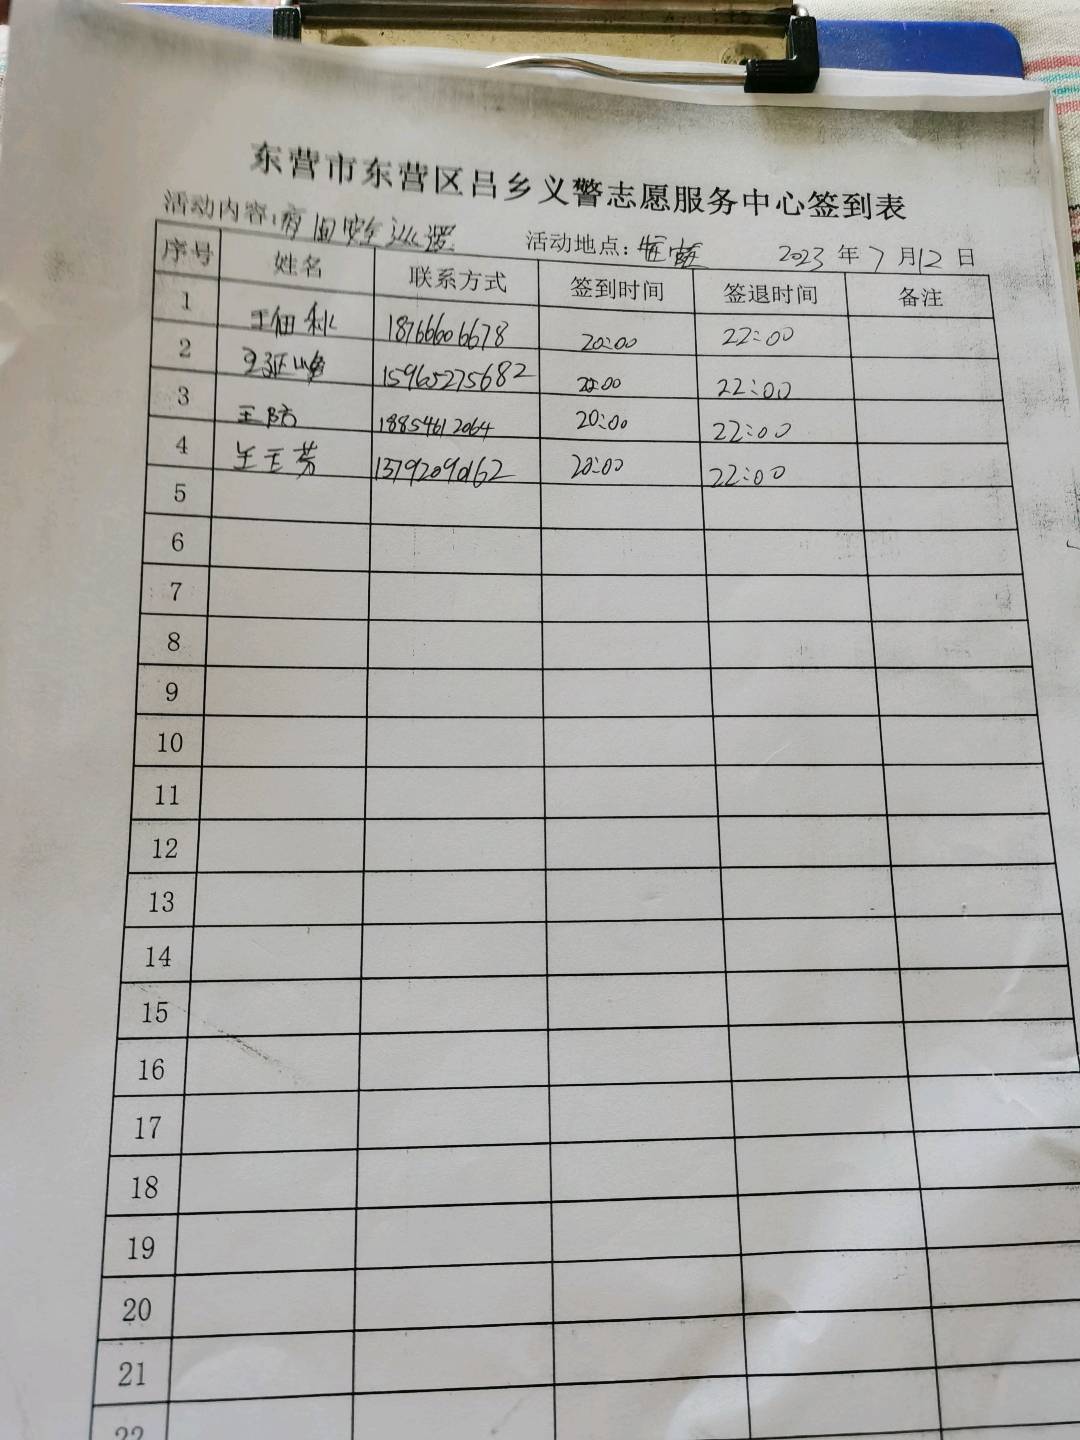 东营市东营区吕乡义警志愿服务中心签到表
活动内容: 安全巡逻 活动地点: 2023 年 7 月 12 日
序号 姓名 联系方式 签到时间 签退时间 备注
1 王佃利 18766606678 20:00 22:00
2 15965275682 20:00 22:00
3 王防 18854612064 20:00 22:00
4 王玉芳 13792090162 20:00 22:00
5
6
7
8
9
10
11
12
13
14
15
16
17
18
19
20
21
22